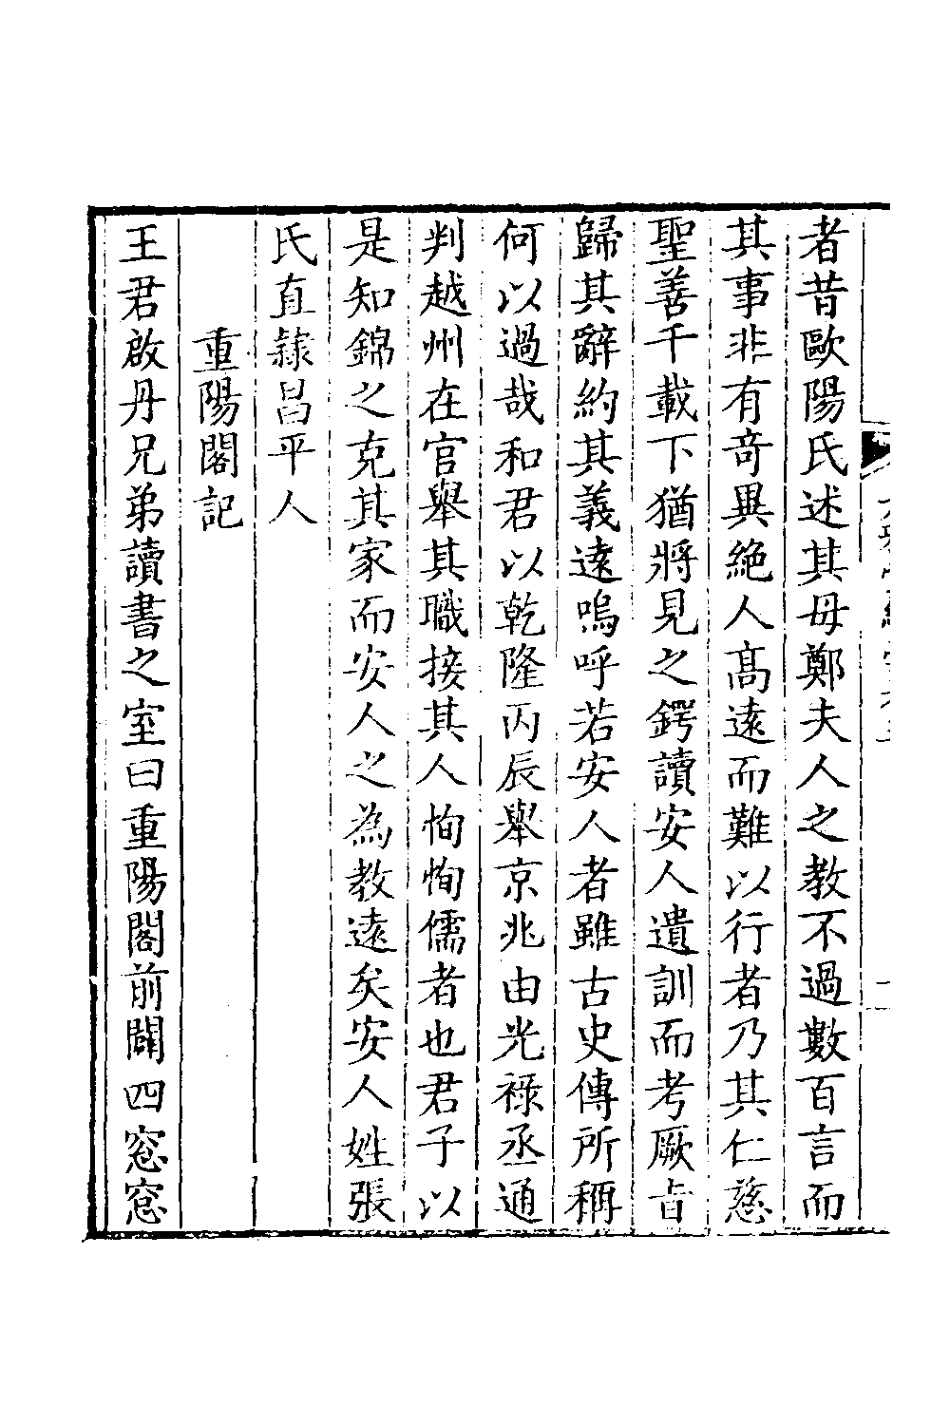 者昔歐陽氏述其母鄭夫人之教不過數百言而
其事非有奇異絶人高遠而難以行者乃其仁慈
聖善千載下猶將見之鍔讀安人遺訓而考厥㫖
歸其辭約其義遠嗚呼若安人者雖古史傳所稱
何以過哉和君以乾隆丙辰舉京兆由光祿丞通
判越州在官舉其職接其人恂恂儒者也君子以
是知錦之克其家而安人之為教遠矣安人姓張
氏直隸昌平人
重陽閣記
王君啟丹兄弟讀書之室曰重陽閣前闢四窓窓